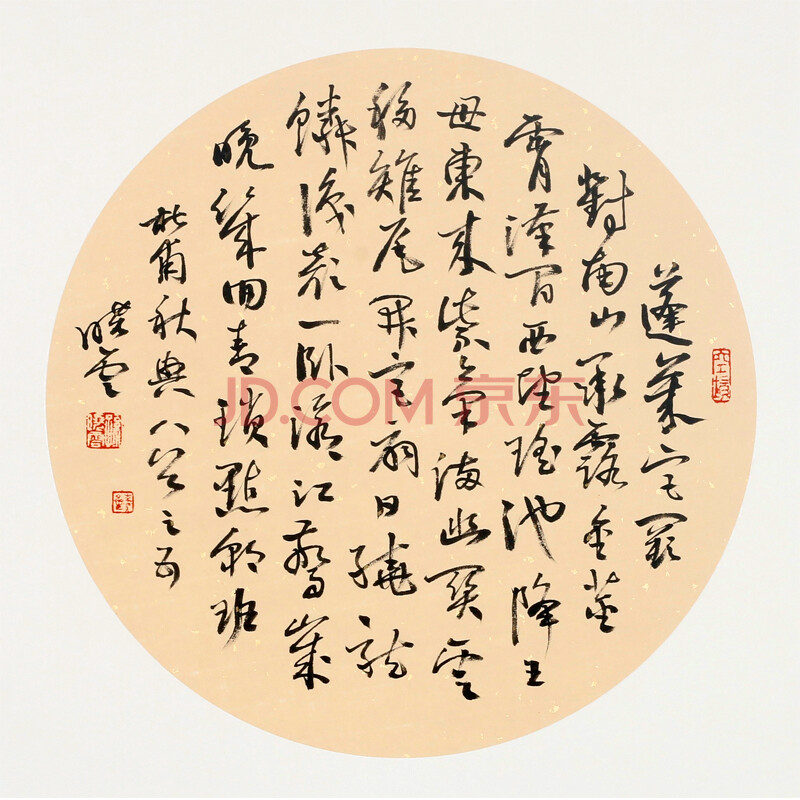 蓬萊宮闕
對南山承露金莖
霄漢間西望瑤池降王
母東來紫氣滿函關雲
移雉尾開宮扇日繞龍
鱗識顏一臥滄江驚歲
晚幾回青瑣點朝班
杜甫秋興八首之五
雲
JD.COM 京东